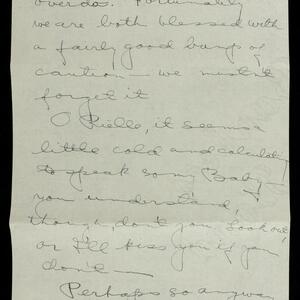 overdo. Fortunately
we are both blessed with
a fairly good bump of
caution — we mustn't
forget it
O Rielle, it seems a
little cold and calculating
to speak so my Baby —
you understand,
though, don't you. Look out
or I'll kiss you if you
don't —
Perhaps so anyway